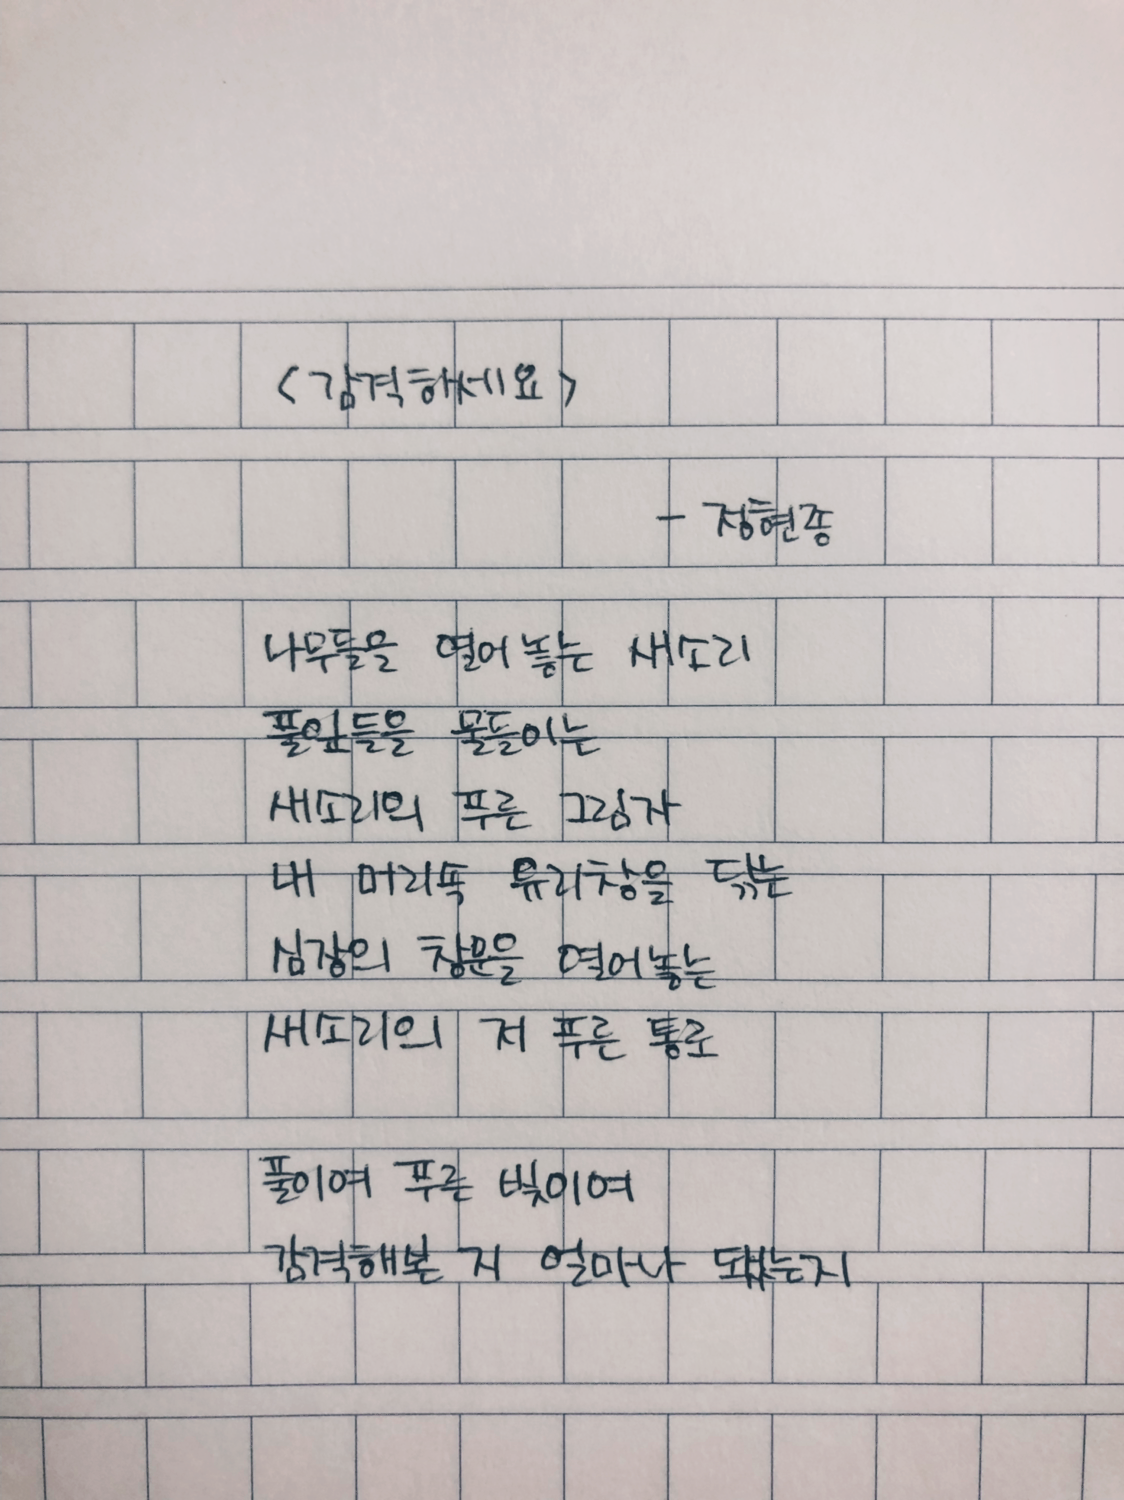 <감격하세요>
- 정현종
나무들을 열어놓는 새소리
풀잎들을 물들이는
새소리의 푸른 그림자
내 머리속 유리창을 닦는
심장의 창문을 열어놓는
새소리의 저 푸른 통로
풀이여 푸른 빛이여
감격해본 지 얼마나 됐는지